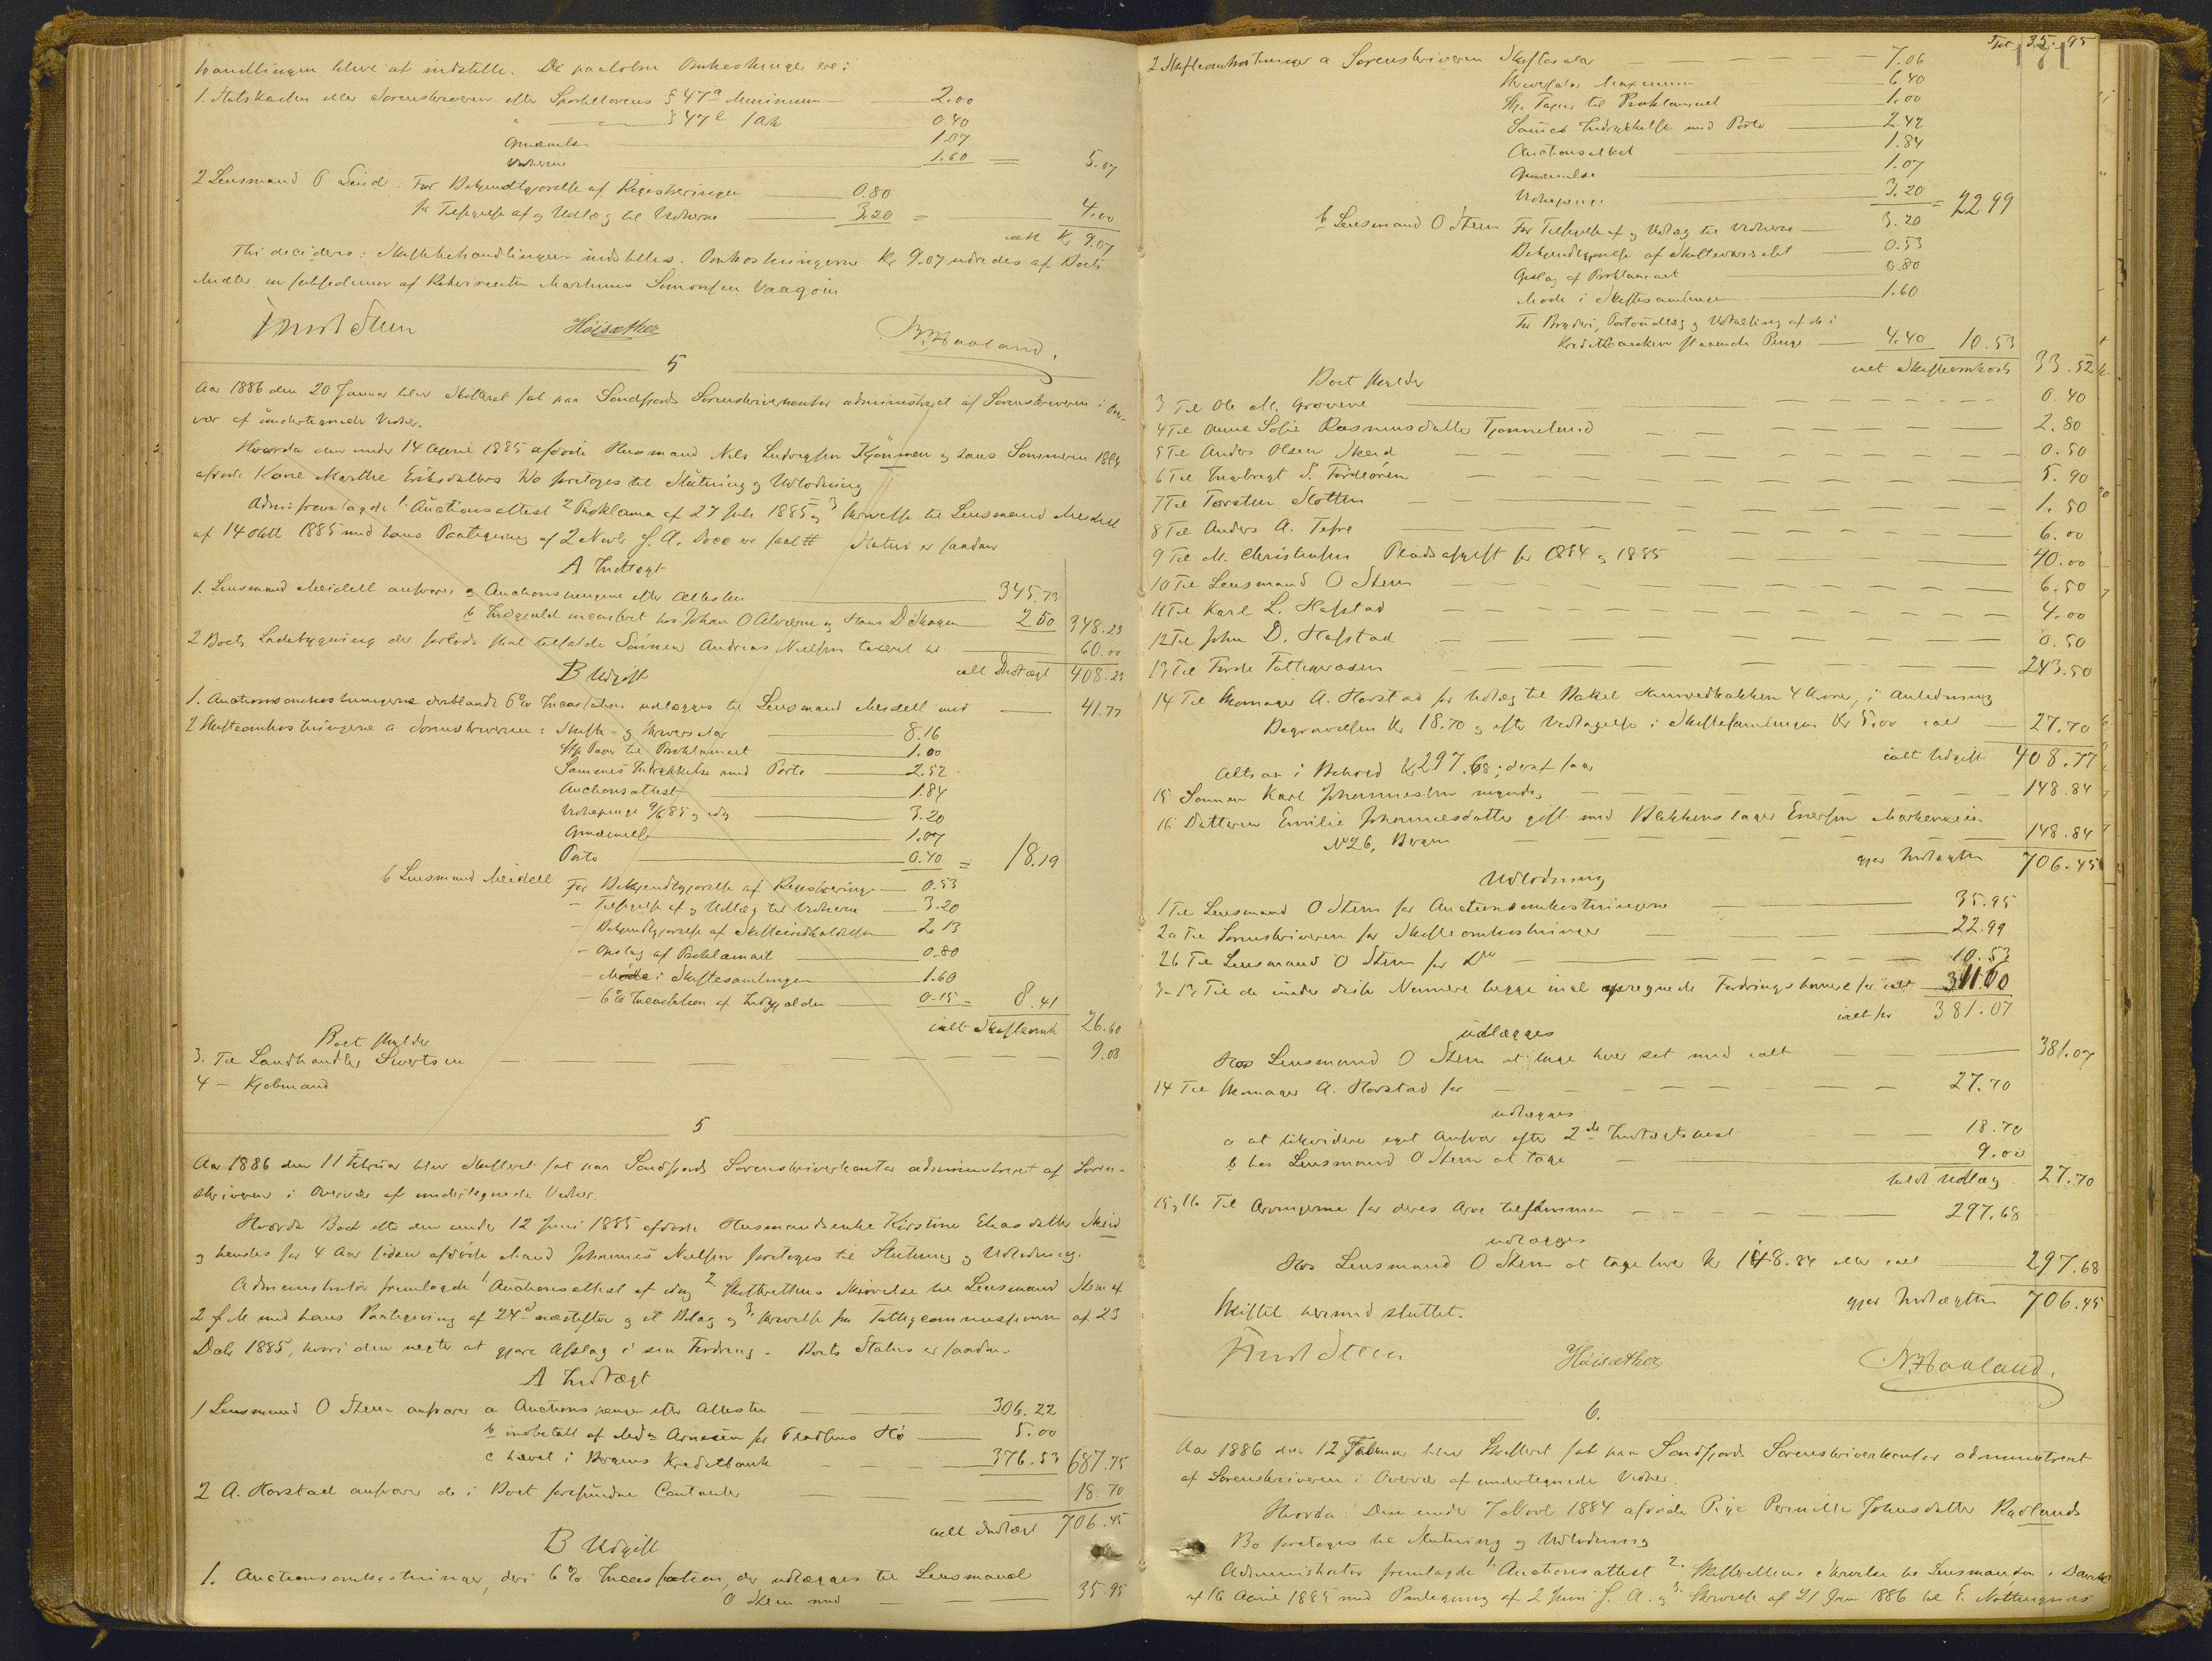 handlingen blive at indstille. De paaløbne Omkostninger ere:
1. Statskassen eller Sorenskriveren efter Sportellovens § 47a Minimum 2.00
" § 47 0.40
Grændelse 1.07
Vidnerne 1.60 = 5.07
2 Lensmand O Lind: For Bekjendtgjørelse af Registreringen 0.80
for Tilsigelse af og Udlæg til Vidnerne 3.20 = 4.00
ialt Kr 9.07
Thi decideres: Skiftebehandlingen indstilles. Omkostningerne Kr 9.07 udredes af Boets
Midler Martinus Simonsen Vaagøen
Knud Steen Høisæther N. Haaland.
5
Aar 1886 den 20 Januar blev Skifteret sat paa Søndfjords Sorenskriverkontor administreret af Sorenskriveren i Over-
vær af undertegnede Vidner.
Hvorda den under 14 April 1885 afdøde Husmand Nils Ludvigsen og hans Sommeren 1884
afdøde Kone Marthe Eriksdatters Bo foretoges til Slutning og Udlodning
Adm: fremlagde 1. Auctionsattest 2 Proklama af 27 Juli 1885 og 3 Skrivelse til Lensmand Meidell
af 14 Oktb 1885 med hans Paategning af 2 Novb s. A. Status er saadan
A Indtægt
1. Lensmand Meidell ansvarer a Auctionspengene efter Attesten 345.73
b Indgjæld incasseret hos Johan O og Hans D Skagen 2.50 348.23
2 Boets Ladebygning der forlods skal tilfalde Sønnen Andreas Nielsen taxeret til 60.00
ialt Indtægt 408.23
B Udgift
1. Auctionsomkostningerne deriblandt 6% Incassation udlægges til Lensmand Meidell med 41.77
2 Skifteomkostningerne a Sorenskriveren: Skifte- og Skriversalær 8.16
Stp Papir til Proklamaet 1.00
Sammes Indrykkelse med Porto 2.52
Auctionsattest 1.84
Vidnepenge 9/6 85 og idag 3.20
Grændelse 1.07
Porto 0.40 = 18.19
b Lensmand Meidell For Bekjendtgjørelse af Registreringen 0.53
- Tilsigelse af og Udlæg til Vidnerne 3.20
- Bekjendtgjørelse af 2.13
- Opslag af Proklamaet 0.80
- Møde i Skiftesamlingen 1.60
- 6% Incassation af Indgjælden 0.15 = 8.41
ialt Skifteomk 26.60
Boet skylder
3. Til Landhandler Sivertsen 9.08
4 - Kjøbmand
5
Aar 1886 den 11 Februar blev Skifteret sat paa Søndfjords Sorenskriverkontor administreret af Soren-
skriveren i Overvær af undertegnede Vidner.
Hvorda Boet efter den under 12 Juni 1885 afdøde Husmandsenke Kirstine Eliasdatter Skeid
og hendes for 4 Aar siden afdøde Mand Johannes Nielsen foretoges til Slutning og Udlodning.
Administrator fremlagde 1 Auctionsattest af idag 2. Skifterettens Skrivelse til Lensmand Steen af
2 f. M med hans Paategning af 24de næstefter og et Bilag og 3. Skrivelse fra Fattigcommissionen af 23
Debr 1885, hvori den negter at gjøre Afslag i sin Fordring. Boets Status er saadan
A Indtægt
1 Lensmand O Steen ansvarer a Auctionspenge efter Attesten 306.22
b indbetalt af Mads Arnesen for Hø 5.00
c hævet i Bergens Kreditbank 376.53 687.75
2 A. Horstad ansvarer de i Boet forefundne Contanter 18.70
ialt Indtægt 706.45
B Udgift
1. Auctionsomkostninger, deri 6% Incassation, der udlægges til Lensmand
O Steen med 35.95
Tpt 35.95
171
2 Skifteomkostninger a Sorenskriveren Skiftesalær 7.06
Skriversalær Maximum 6.40
Stp. Papir til Proklamaet 1.00
Sammes Indrykkelse med Porto 2.42
Auctionsattest 1.84
Grændelse 1.07
Vidnepenge 3.20 = 22.99
b Lensmand O Steen For Tilsigelse af og Udlæg til Vidnerne 3.20
Bekjendtgjørelse af Skiftevarselet 0.53
Opslag af Proklamaet 0.80
Møde i Skiftesamlingen 1.60
For Bryderi, Portoudlæg og Udbetaling af de i
Kreditbanken staaende Penge 4.40 10.53
ialt Skifteomkost 33.52
Boet skylder
3 Til Ole M. Grovene 0.40
4 Til Anne Sofie Rasmusdatter 2.80
5 Til Anders Olsen Skeid 0.50
6 Til Ingebrigt S. Førdeøren 5.90
7 Til Torsten Slotten 1.50
8 Til Anders A. Tefre 6.00
9 Til M. Christensen Pladsafgift for 1884 og 1885 40.00
10 Til Lensmand O Steen 6.50
11 Til Karl L. Hafstad 4.00
12 Til John D. Hafstad 0.50
13 Til Førde Fattigvæsen 243.50
14 Til Skomager A. Horstad for Udlæg til Mikkel Hornnesbakken 4 Kroner, i Anledning
Begravelsen Kr 18.70 og efter Vedtagelse i Skiftesamlingen Kr 5.00 ialt 27.70
ialt Udgift 408.77
Altsaa i Behold Kr 297.68; deraf faar
15 Sønnen Karl Johannessen myndig 148.84
16 Datteren Emilie Johannesdatter gift med Blikkenslager Enersen Markeveien
No 26, Bergen 148.84
gjør Indtægten 706.45
Udlodning
1 Til Lensmand O Steen for Auctionsomkostningerne 35.95
2a Til Sorenskriveren for Skifteomkostninger 22.99
2b Til Lensmand O Steen for Do 10.53
3-13 Til de under disse Numere begge incl opregnede Fordringshavere for ialt 311.60
ialt for 381.07
udlægges
Hos Lensmand O Steen at tage hver sit med ialt 381.07
14 Til Skomager A. Horstad for 27.70
udlægges
a at likvidere eget Ansvar efter 2den Indtægtspost 18.70
b hos Lensmand O Steen at tage 9.00
fuldt Udlæg 27.70
15 og 16 Til Arvingerne for deres Arv tilsammen 297.68
udlægges
Hos Lensmand O Steen at tage hver Kr 148.84 eller ialt 297.68
gjør Indtægten 706.45
Skiftet hermed sluttet.
Knud Steen Høisæther N. Haaland.
6.
Aar 1886 den 12 Februar blev Skifteret sat paa Søndfjords Sorenskriverkontor administreret
af Sorenskriveren i Overvær af undertegnede Vidner.
Hvorda: Den under 7 Novb 1884 afdøde Pige Pernille Johnsdatter
Bo foretoges til Slutning og Udlodning
Administrator fremlagde 1. Auctionsattest 2. Skifterettens Skrivelse til Lensmanden i
af 16 April 1885 med Paategning af 2 Juni s. A. og 3. Skrivelse af 21 Jan 1886 til E.